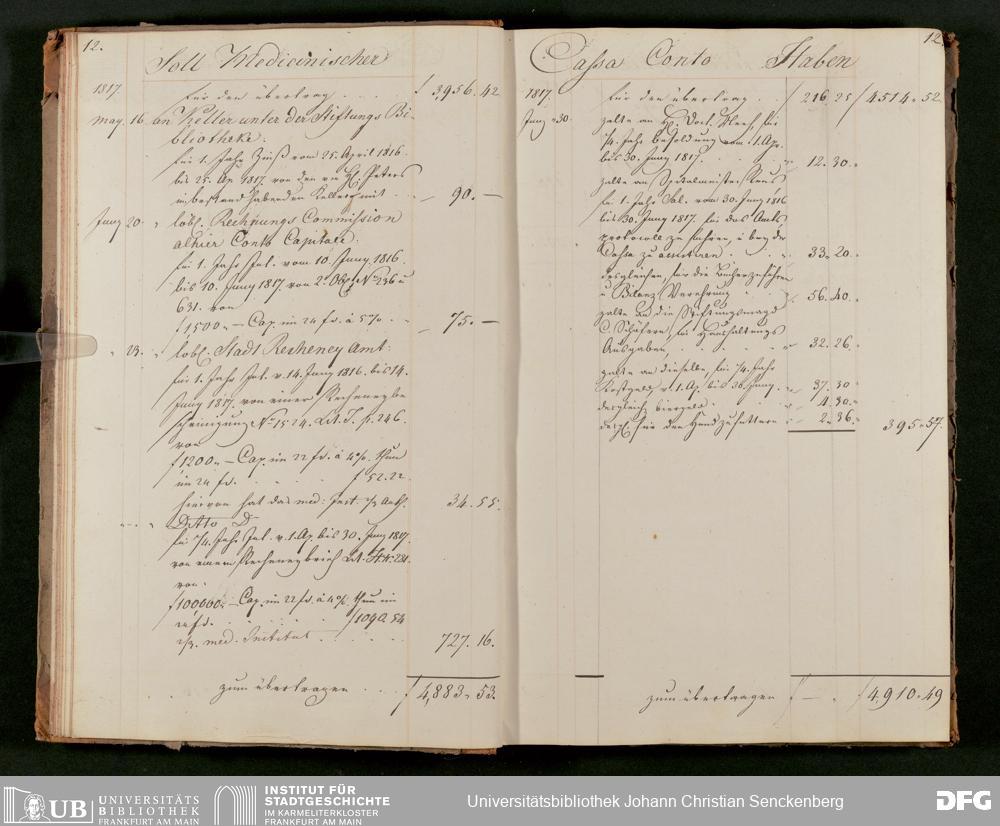 12.
Soll Medicinischer
1817. für den übertrag . . . f 3956. 42
may. 16. an Keller unter der Stiftungs Bi-
bliotheke.
für 1. Jahr Zinß vom 25. April 1816.
bis 25. Ap. 1817. von den von H. Peters
in bestand habenden Keller mit . . — 90. —
Juny 20. " löbl. Rechnungs Commission
alhier Conto Capitale.
für 1. Jahr Int. vom 10. Juny 1816.
bis 10. Juny 1817. von 2. Obl. No 236 u
631. von
f 1500. — Cap. im 24 fs. à 5 % . . — 75. —
" 23. " löbl. Stadt Recheney Amt.
für 1. Jahr Int. v. 14. Juny 1816. bis 14.
Juny 1817. von einer Recheneybe-
scheinigung No 1524. Lit. J. p. 246.
von
f 1200. — Cap. im 22 fs. à 4 %. thun
im 24 fs. . . . . f 52.22.
hiervon hat das med: Inst. 2/3 Anth. 34. 55.
" — " Ditto Do
für 1/4. Jahr Int. v. 1. Ap. bis 30. Juny 1817.
von einem Recheneybrief Lit. H. No 281.
von.
f 100,000. — Cap. im 22 fs. à 4 %. thun im
24 fs. . . . . f 1090. 54
2/3. med. Institut . . . 727. 16.
zum übertragen . . . f 4,883. 53.
12
Cassa Conto Haben
1817. für den übertrag . . f 216. 25 f 4514. 52.
Juny 30. zalte an H. Doct. , für
1/4. Jahr Besoldung vom 1. Apr.
bis 30. Juny 1817. . . . 12. 30.
zalte an Spitalmeister
für 1. Jahr Sal. vom 30. Juny 1816
bis 30. Juny 1817. für das Amts-
protocoll zu führen, u bey der
Cassa zu assistiren . . . 33. 20.
desgleichen, für die Bücher zu führen
u Bilanz Verehrung . . 56. 40.
zalte an die Stiftungsmagd
C. Schäfern, für Haushaltungs
Ausgaben, . . . . 32. 26.
zalte an dieselbe, für 1/4. Jahr
Kostgeld, v. 1. Ap. bis 30. Juny. . 37. 30
desgleich. biergeld . . . 4. 30.
desgl. für den Hund zu futtern . 2. 36. 395. 57.
zum übertragen f — . f 4,910. 49
UB
UNIVERSITÄTS
BIBLIOTHEK
FRANKFURT AM MAIN
INSTITUT FÜR
STADTGESCHICHTE
IM KARMELITERKLOSTER
FRANKFURT AM MAIN
Universitätsbibliothek Johann Christian Senckenberg
DFG